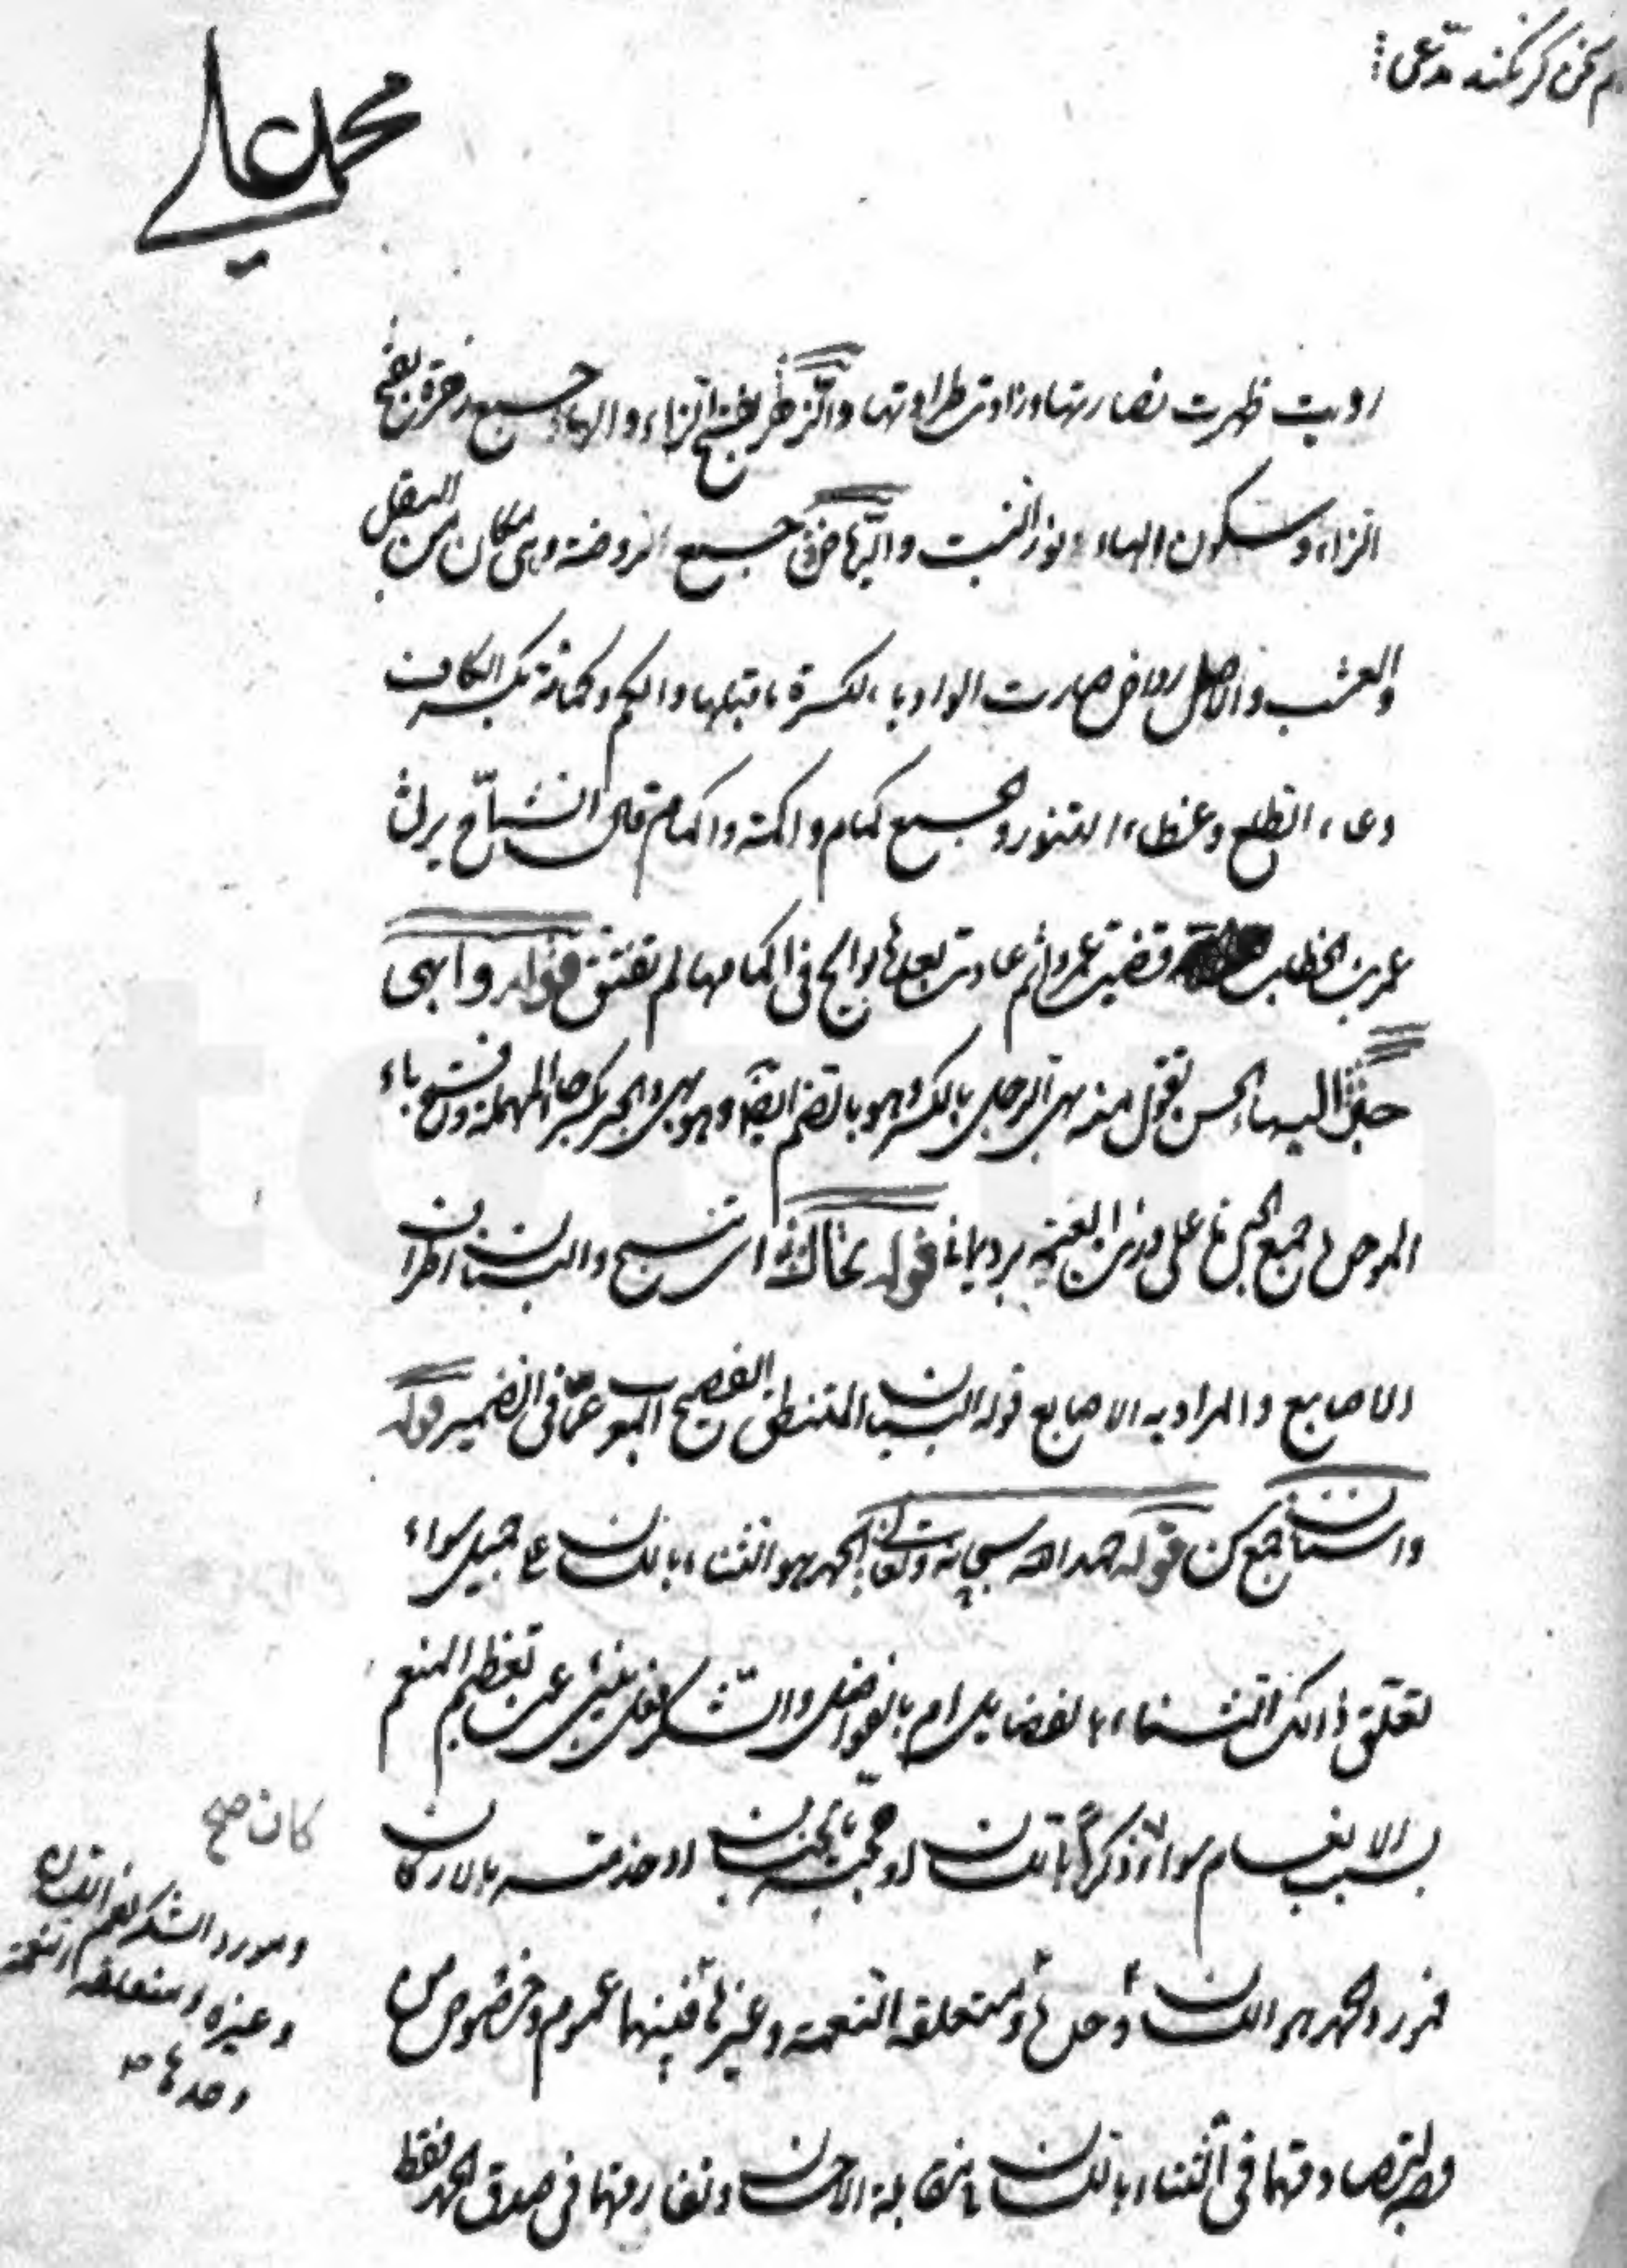 سخن گر نکند مدعی
محمد علی
رويت ظهرت نضارتها وزادت طراوتها والزهر بفتح الزاء والهاء جميع زهرة بفتح
الزاء وسكون الهاء نور النبت والرياض جميع الروضة وهى مكان من البقل
والعشب والاصل رواض صارت الواو ياء لكسرة ما قبلها والكم وكمامة بكسر الكاف
وعاء الطلع وغطاء التنور والجميع كمام واكمة واكمام قال الشماخ يرثى
عمر بن الخطاب قضيت ثم غادرت بعدها بوايج فى اكمامها لم تفتق قوله وابهى
حبرًا البهاء الحسن تقول منه بهى الرجل بالكسر وبهو بالضم ايضًا وهو بهى والحبر بكسر حاء المهملة وفتح باء
الموحدة جميع الحبرة على وزن العنبة برد يمانى قوله تحاك اى تنسج والبنان اطراف
الاصابع والمراد به الاصابع قوله البيان المنطق الفصيح المعرب عما فى الضمير قوله
واسنان جمع سن قوله حمد الله سبحانه وتعالى الحمد هو الثناء باللسان على جميل سواء
تعلق ذالك الثناء بالفضايل ام بالفواضل والشكر فعل ينبئ عن تعظيم المنعم
بسبب الانعام سواء ذكرًا باللسان او محبة بالجنان او خدمة بالاركان
فمورد الحمد هو اللسان وحدها ومتعلقه النعمة وغيرها فبينهما عموم وخصوص من
وجه لتصادقهما فى الثناء باللسان فى مقابلة الاحسان وتفارقهما فى صدق الحمد فقط
كان صح
ومورد الشكر يعم اللسان
وغيره ومتعلقه النعمة
وحدها